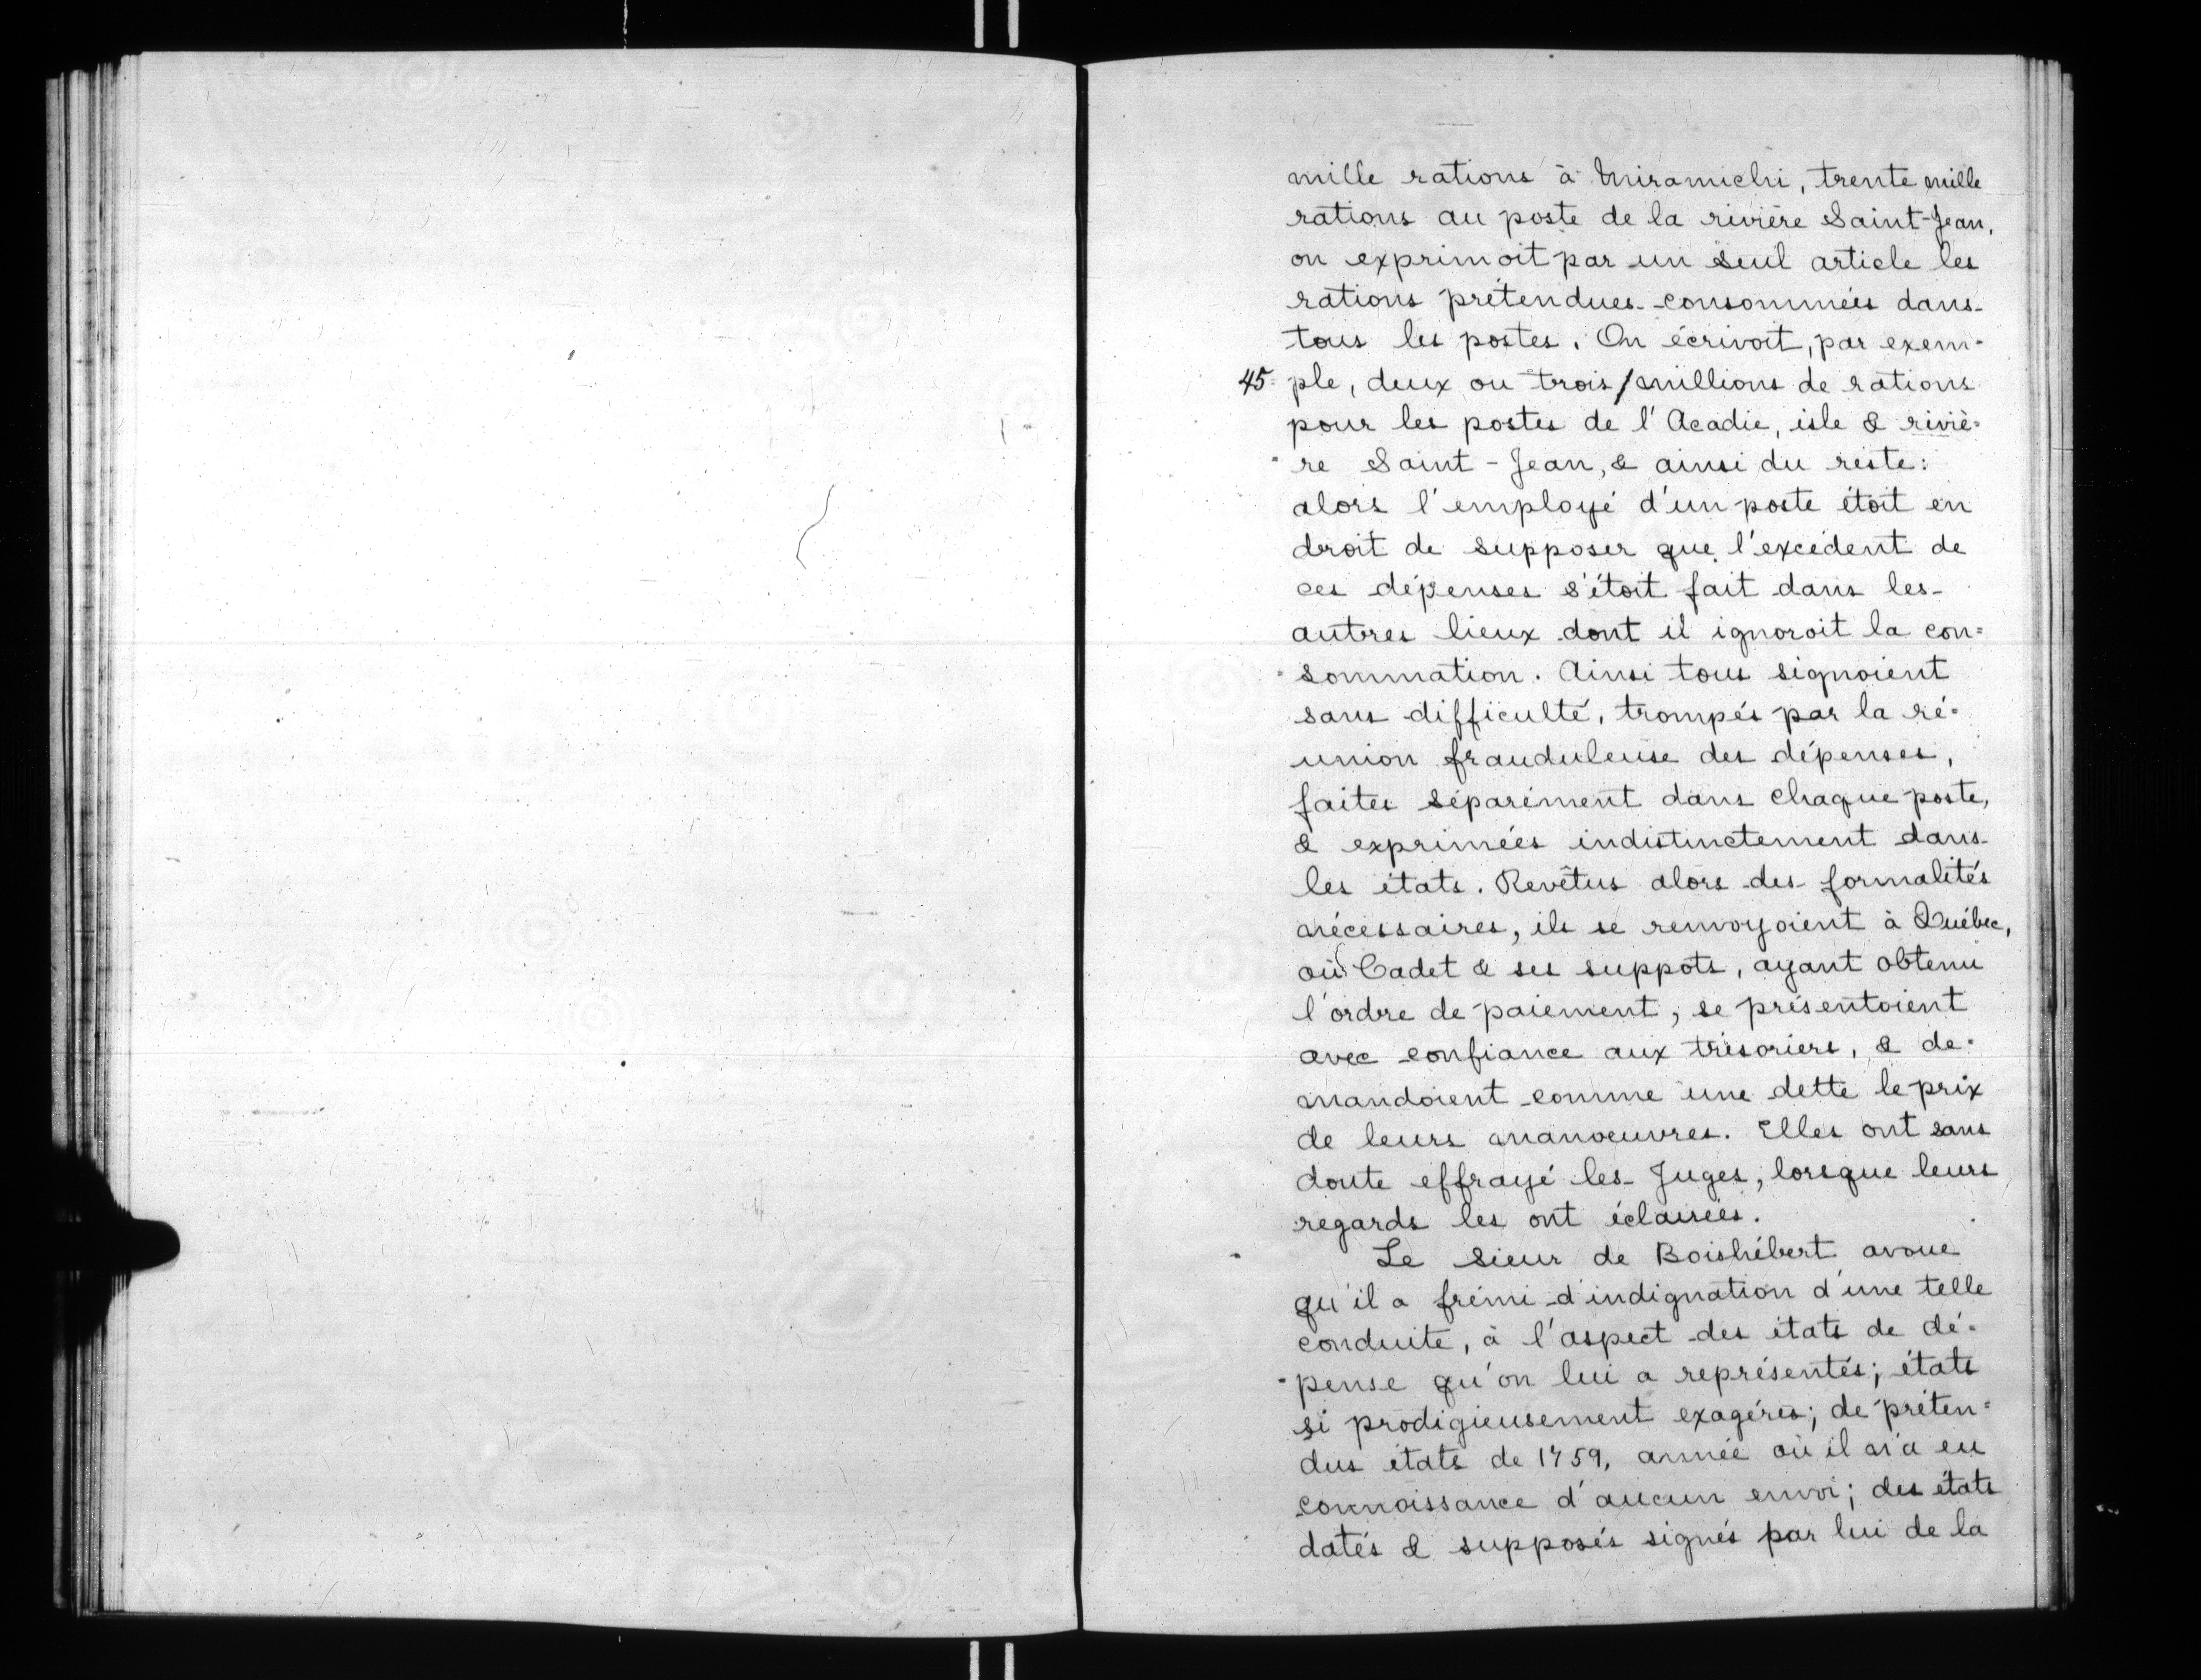 mille rations à Miramichi, trente mille
rations au poste de la rivière Saint-Jean,
on exprimoit par un seul article les
rations prétendues consommées dans
tous les postes. On écrivoit, par exem-
45 ple, deux ou trois / millions de rations
pour les postes de l'Acadie, isle & riviè=
re Saint-Jean, & ainsi du reste:
alors l'employé d'un poste étoit en
droit de supposer que l'excédent de
ces dépenses s'étoit fait dans les
autres lieux dont il ignoroit la con=
sommation. Ainsi tous signoient
sans difficulté, trompés par la ré=
union frauduleuse des dépenses,
faites séparément dans chaque poste,
& exprimées indistinctement dans
les états. Revêtus alors des formalités
nécessaires, ils se renvoyoient à Québec,
où Cadet & ses suppots, ayant obtenu
l'ordre de paiement, se présentoient
avec confiance aux trésoriers, & de=
mandoient comme une dette le prix
de leurs manoeuvres. Elles ont sans
doute effrayé les Juges, lorsque leurs
regards les ont éclairées.
Le Sieur de Boishébert avoue
qu'il a frémi d'indignation d'une telle
conduite, à l'aspect des états de dé=
pense qu'on lui a représentés; états
si prodigieusement exagérés; de préten=
dus états de 1759, année où il n'a eu
connoissance d'aucun envoi; des états
datés & supposés signés par lui de la